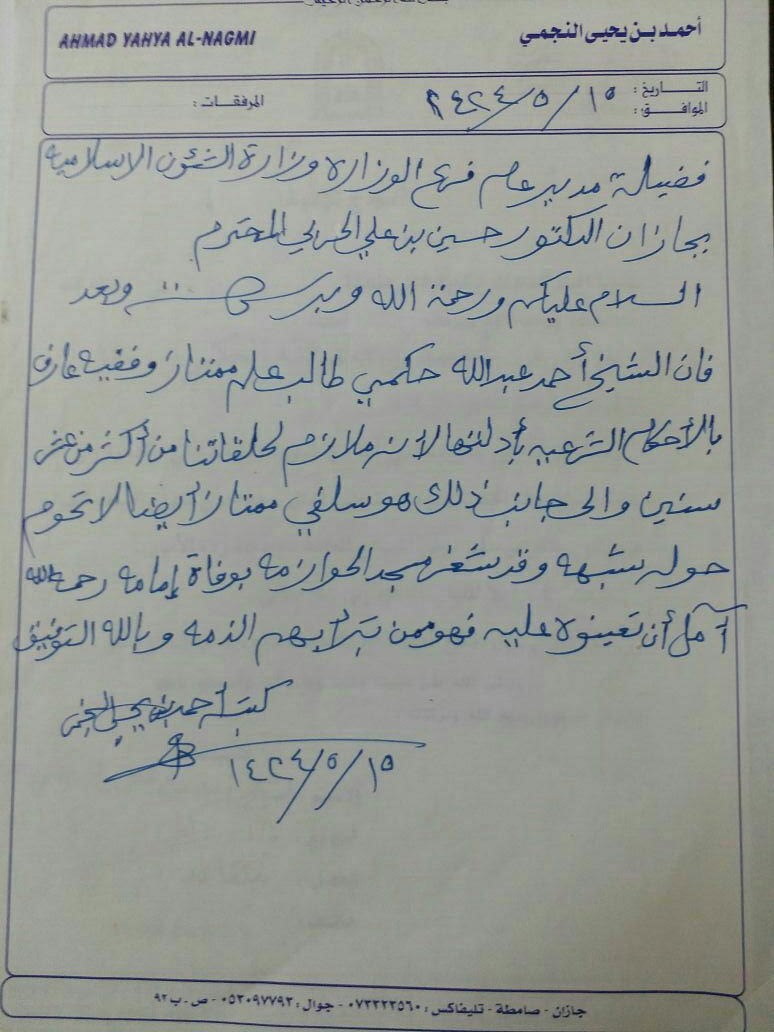 بسم الله الرحمن الرحيم
أحمد بن يحيى النجمي
AHMAD YAHYA AL-NAGMI
التــاريخ : ١٥/٥/١٤٢٤
الموافق :
المرفقات :
فضيلة مدير عام فرع الوزارة وزارة الشئون الاسلاميه
بجازان الدكتور حسين بن علي الحربي المحترم
السلام عليكم ورحمة الله وبركاته وبعد
فان الشيخ أحمد عبدالله حكمي طالب علم ممتاز وفقيه عارف
بالأحكام الشرعيه بأدلتها لأنه ملازم لحلقاتنا من أكثر من عشر
سنين والى جانب ذلك هو سلفي ممتاز أيضا لا تحوم
حوله شبهه وقد شغر مسجد الخوارمه بوفاة إمامه رحمه الله
آمل أن تعينوه عليه فهو ممن تبرأ بهم الذمه وبالله التوفيق
كتبه أحمد بن يحيى النجمي
١٤٢٤/٥/١٥
جازان - صامطة - تليفاكس : ٠٧٣٣٢٣٥٦٠ - جوال : ٠٥٣٠٩٧٧٩٣ - ص.ب ٩٢